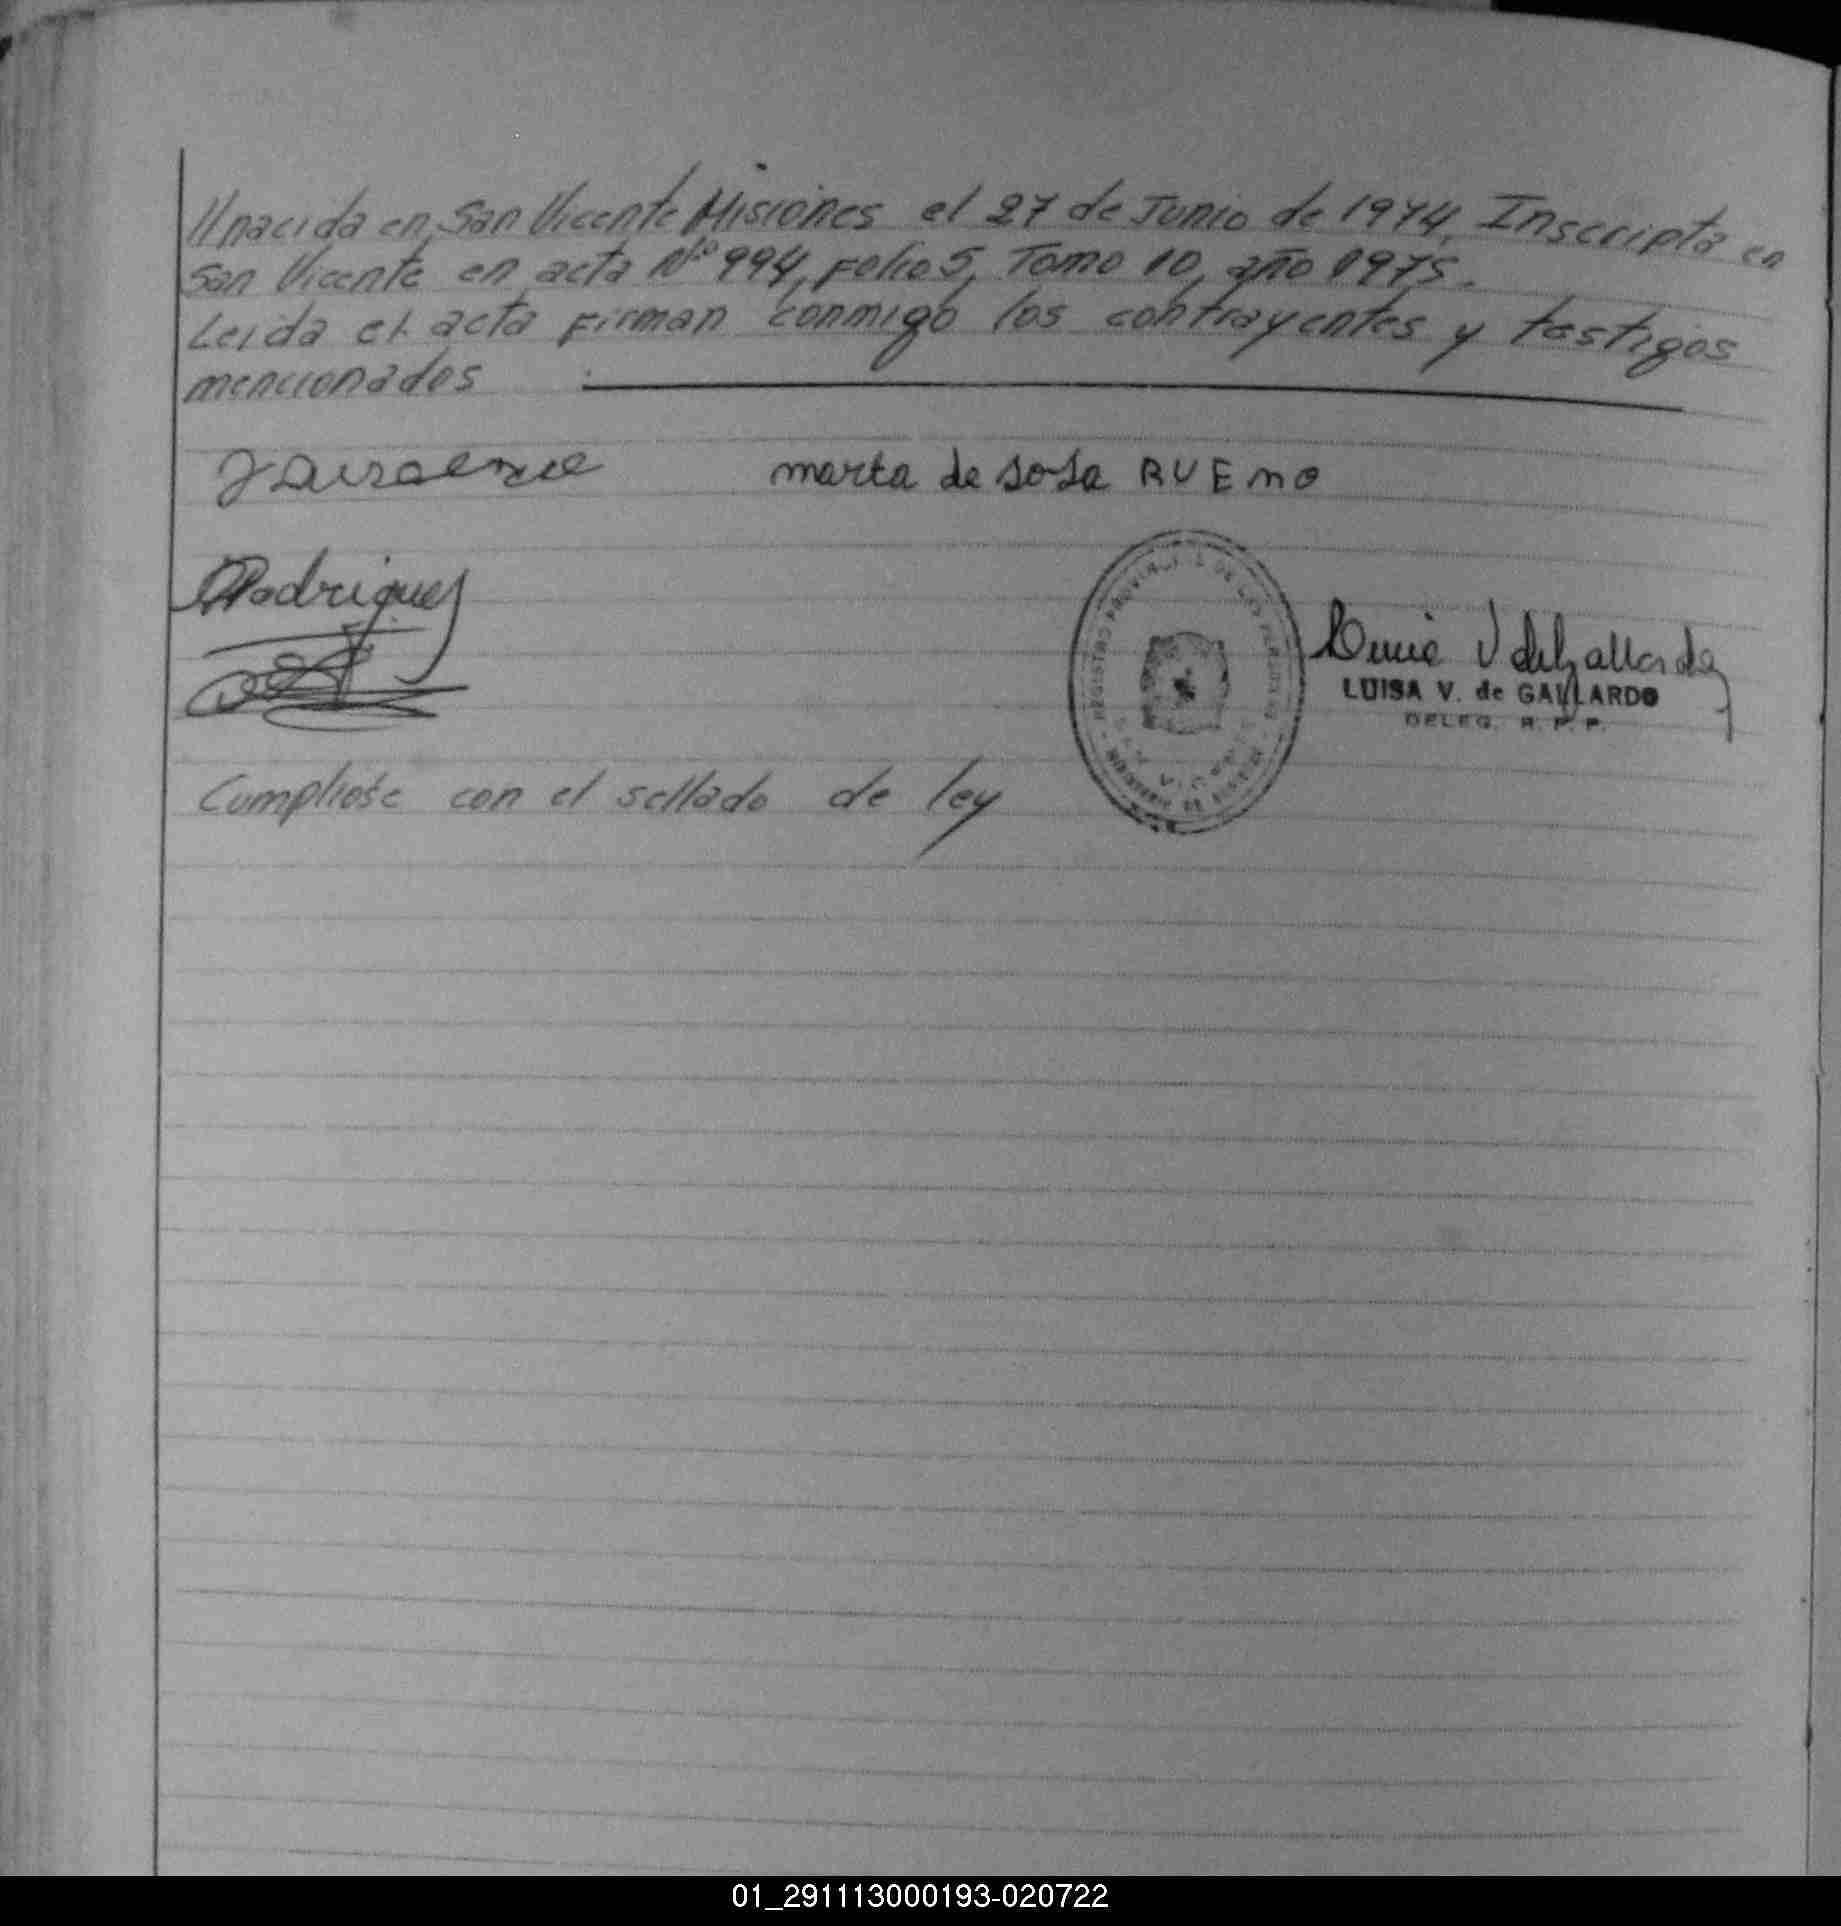 //nacida en San Vicente Misiones el 27 de Junio de 1974, Inscripta en
San Vicente en acta Nº 994, Folio 5, Tomo 10, año 1975.
Leida el acta Firman conmigo los contrayentes y testigos
mencionados
marta de sosa RUEmo
Rodriguez
REGISTRO PROVINCIAL DE LAS PERSONAS
LUISA V. de GALLARDO
DELEG. R. P. P.
Cumpliose con el sellado de ley
01_291113000193-020722